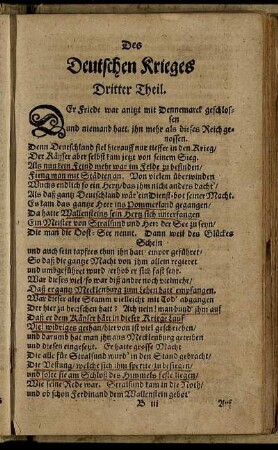 Des
Deutschen Krieges
Dritter Theil.
DEr Friede war anitzt mit Dennemarck geschlos-
sen
und niemand hatt, ihn mehr als dieses Reich ge-
nossen.
Denn Deutschland fiel hierauff nur tieffer in den Krieg/
Der Käyser aber selbst kam jetzt von seinem Sieg.
Als nun kein Feind mehr war im Felde zu befinden/
Fieng man mit Städten an. Von lauten überwinden
Wuchs endlich so ein Hertz/ das ihm nicht anders dacht/
Als daß gantz Deutschland wär ein Dienst-bot seiner Macht.
Es kam das gantze Heer ins Pommerland gegangen/
Da hatte Wallensteins sein Hertz sich unterfangen
Ein Meister von Stralsund und Herr der See zu seyn/
Die man die Ost-See nennt. Dann weil des Glückes
Schein
und auch sein tapfres thun ihn hatt' empor geführet/
So daß die gantze Macht von ihm allein regieret
und umbgeführet wurd/ erhob er sich fast sehr.
War dieses viel/ so war diß andre noch vielmehr/
Daß er gantz Mecklenburg zum Lehen hatt empfangen.
War dieser alte Stamm vielleicht mit Tod' abgangen
Der hier zu herrschen hatt? Ach nein! man bund' ihm auf
Daß er dem Käyser hätt in dieser Krieges lauf
Viel widriges gethan/ hiervon ist viel geschrieben/
und darumb hat man ihn aus Mecklenburg getrieben
und diesen eingesetzt. Er hatte grosse Macht
Die alle für Stralsund wurd' in den Stand gebracht/
Die Vestung/ welche sich ihm sperrte/ zu besiegen/
und solte sie am Schloß des Himmels feste liegen/
Wie seine Rede war. Stralsund kam in die Noth/
und ob schon Ferdinand dem Wallenstein gebot'
B iii
Auf